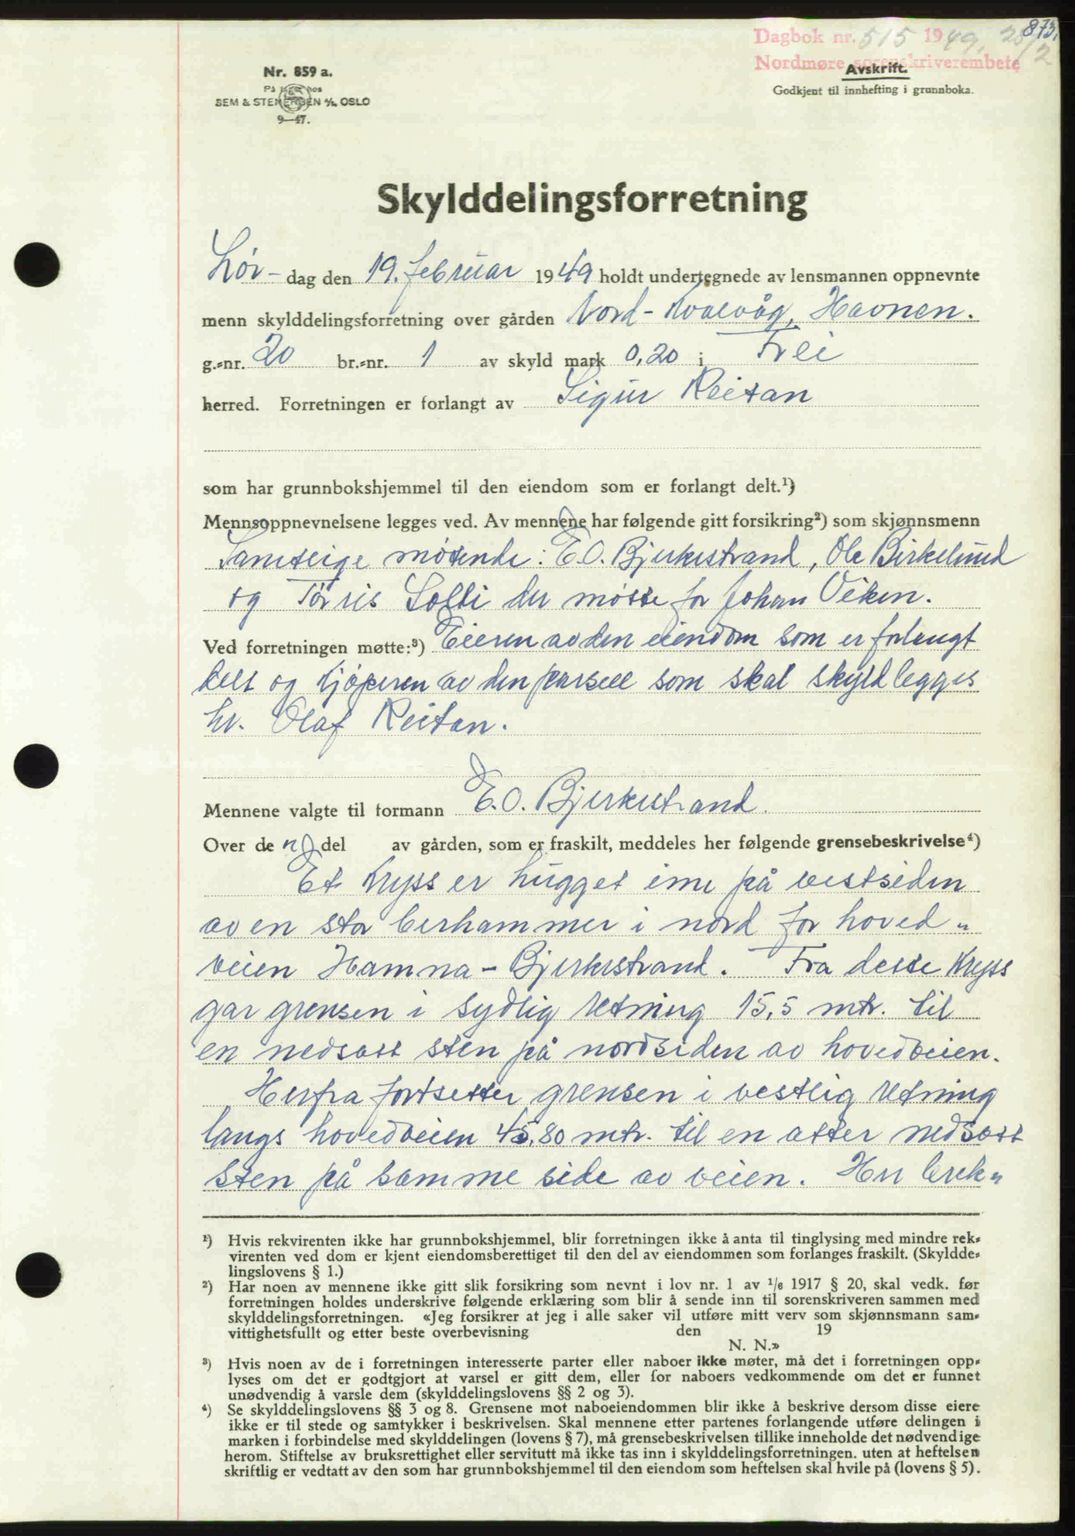 873.
Dagbok nr. 515 1949, 25/2
Nordmøre sorenskriverembete
Avskrift.
Godkjent til innhefting i grunnboka.
Nr. 859 a.
På lager hos
SEM & STENERSEN A/S, OSLO
9—47.
Skylddelingsforretning
Lør- dag den 19. februar 1949 holdt undertegnede av lensmannen oppnevnte
menn skylddelingsforretning over gården Nord-Kvalvåg, Havnen.
g.-nr. 20 br.-nr. 1 av skyld mark 0,20 i Frei
herred. Forretningen er forlangt av Sigur Reitan
som har grunnbokshjemmel til den eiendom som er forlangt delt.¹)
Mennsoppnevnelsene legges ved. Av mennene har følgende gitt forsikring²) som skjønnsmenn
Samtlige møtende: E.O. Bjerkestrand, Ole Birkelund
og Tørris Solli der møtte for Johan Viken.
Ved forretningen møtte:³) Eieren av den eiendom som er forlangt
delt og kjøperen av den parsell som skal skyldlegges
hr. Olaf Reitan.
Mennene valgte til formann E.O. Bjerkestrand.
Over de n del av gården, som er fraskilt, meddeles her følgende grensebeskrivelse⁴)
Et kryss er hugget inn på vestsiden
av en stor berhammer i nord for hoved-
veien Hamna - Bjerkestrand. Fra dette kryss
går grensen i sydlig retning 15,5 mtr. til
en nedsatt sten på nordsiden av hovedveien.
Herfra fortsetter grensen i vestlig retning
langs hovedveien 45,80 mtr. til en atter nedsatt
sten på samme side av veien. Her brek-
¹) Hvis rekvirenten ikke har grunnbokshjemmel, blir forretningen ikke å anta til tinglysing med mindre rek-
virenten ved dom er kjent eiendomsberettiget til den del av eiendommen som forlanges fraskilt. (Skyldde-
lingslovens § 1.)
²) Har noen av mennene ikke gitt slik forsikring som nevnt i lov nr. 1 av ¹/₆ 1917 § 20, skal vedk. før
forretningen holdes underskrive følgende erklæring som blir å sende inn til sorenskriveren sammen med
skylddelingsforretningen. «Jeg forsikrer at jeg i alle saker vil utføre mitt verv som skjønnsmann sam-
vittighetsfullt og etter beste overbevisning den 19
N. N.»
³) Hvis noen av de i forretningen interesserte parter eller naboer ikke møter, må det i forretningen opp-
lyses om det er godtgjort at varsel er gitt dem, eller for naboers vedkommende om det er funnet
unødvendig å varsle dem (skylddelingslovens §§ 2 og 3).
⁴) Se skylddelingslovens §§ 3 og 8. Grensene mot naboeiendommen blir ikke å beskrive dersom disse eiere
ikke er til stede og samtykker i beskrivelsen. Skal mennene etter partenes forlangende utføre delingen i
marken i forbindelse med skylddelingen (lovens § 7), må grensebeskrivelsen tillike inneholde det nødvendige
herom. Stiftelse av bruksrettighet eller servitutt må ikke tas inn i skylddelingsforretningen, uten at heftelsen
skriftlig er vedtatt av den som har grunnbokshjemmel til den eiendom som heftelsen skal hvile på (lovens § 5).